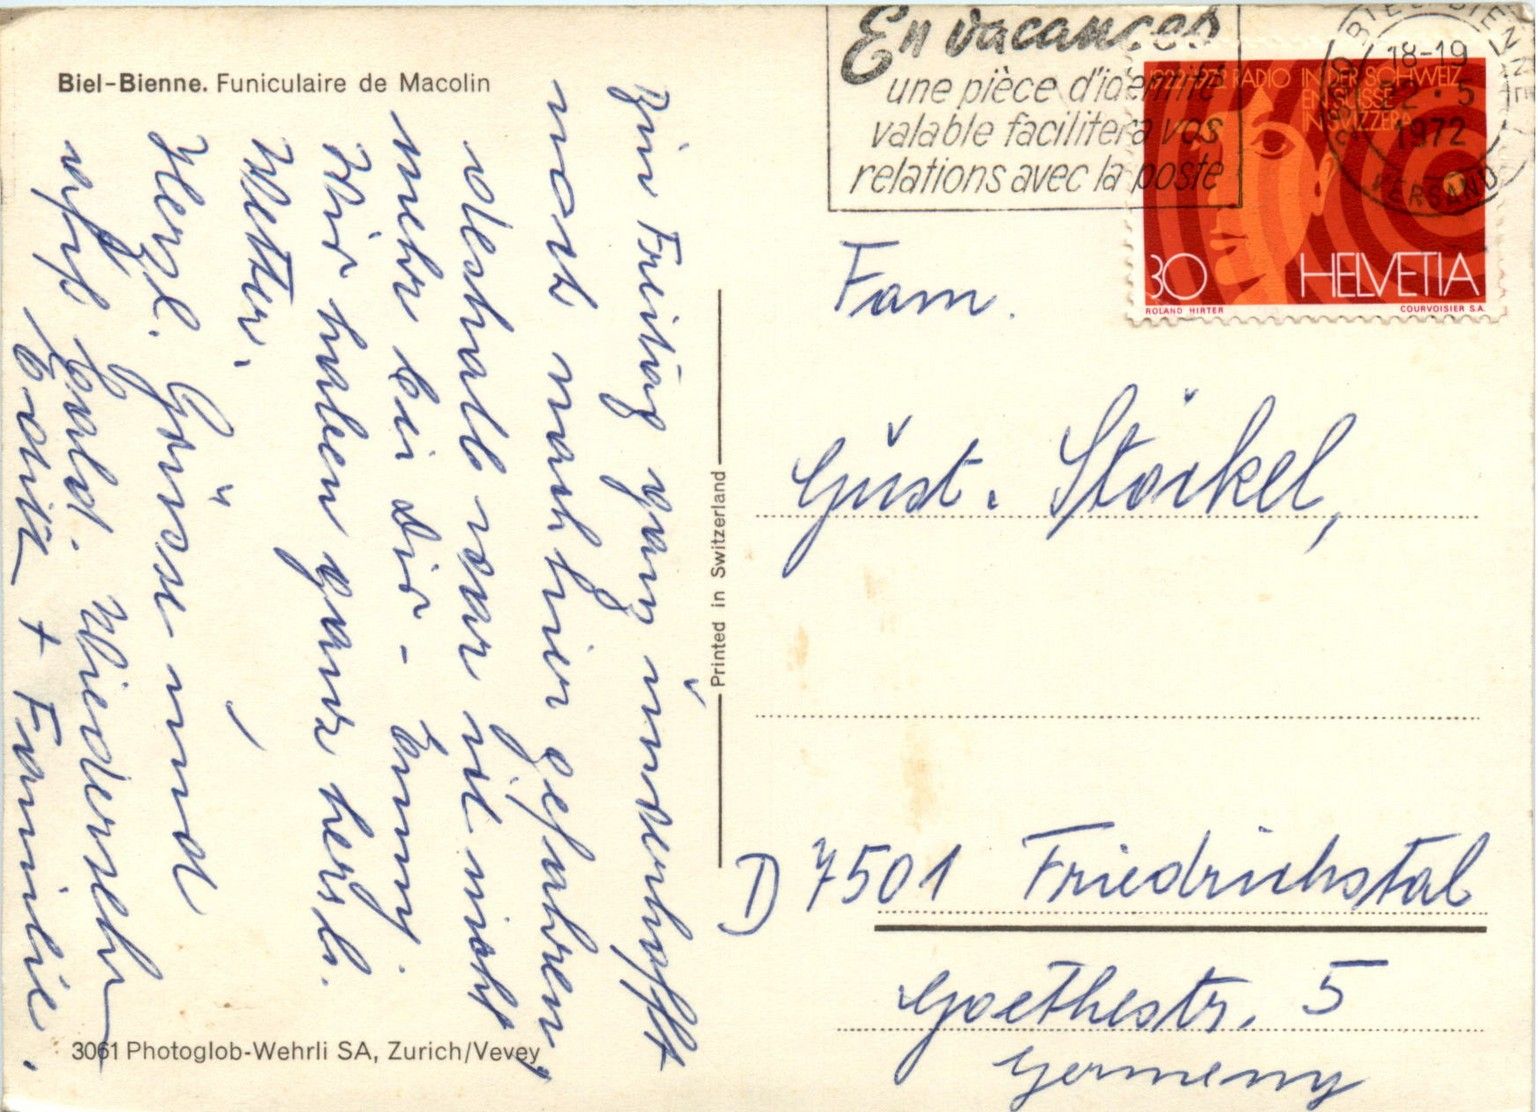 Biel-Bienne. Funiculaire de Macolin
Bin Freitag ganz unverhofft
noch nach hier gefahren,
deshalb war ich nicht
mehr bei Dir - Emmi.
Wir haben ganz herrl.
Wetter.
Herzl. Grüsse und
auf bald. Wiedersehn
+ Familie.
3061 Photoglob-Wehrli SA, Zurich/Vevey
Printed in Switzerland
En vacances
une pièce d'identité
valable facilitera vos
relations avec la poste
BIEL-BIENNE
18-19
1972
VERSAND
RADIO IN DER SCHWEIZ
EN SUISSE
IN SVIZZERA
30 HELVETIA
ROLAND HIRTER COURVOISIER S.A.
Fam.
Gust. Stöckel,
D 7501 Friedrichstal
Goethestr. 5
Germeny